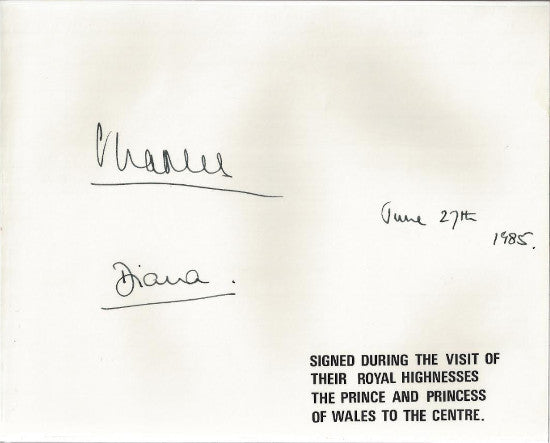 Charles
June 27th
1985.
Diana.
SIGNED DURING THE VISIT OF
THEIR ROYAL HIGHNESSES
THE PRINCE AND PRINCESS
OF WALES TO THE CENTRE.